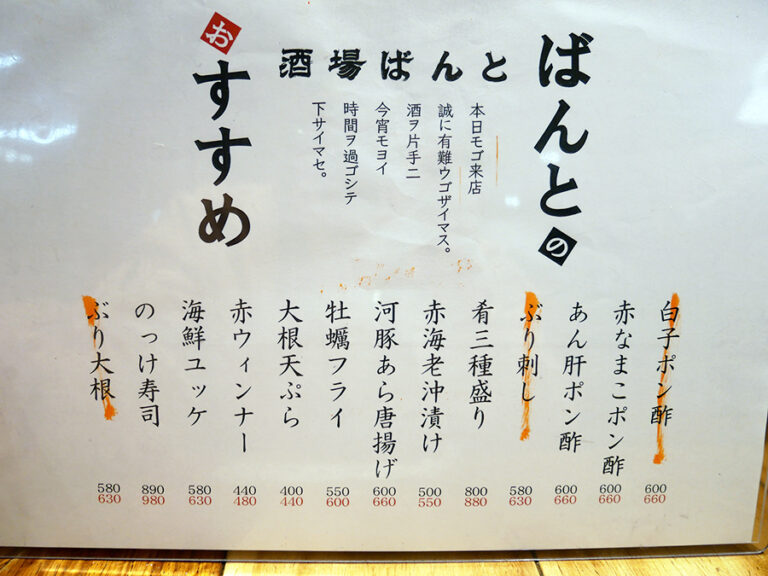 ばんとの
おすすめ
酒場ばんと
本日モゴ来店
誠に有難ウゴザイマス。
酒ヲ片手ニ
今宵モヨイ
時間ヲ過ゴシテ
下サイマセ。
白子ポン酢 600 660
赤なまこポン酢 600 660
あん肝ポン酢 600 660
ぶり刺し 580 630
肴三種盛り 800 880
赤海老沖漬け 500 550
河豚あら唐揚げ 600 660
牡蠣フライ 550 600
大根天ぷら 400 440
赤ウィンナー 440 480
海鮮ユッケ 580 630
のっけ寿司 890 980
ぶり大根 580 630